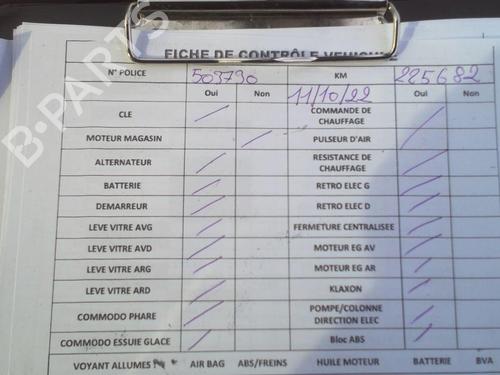 FICHE DE CONTRÔLE VEHICULE
N° POLICE 509790 KM 225682
Oui Non 11/10/22 Oui Non
CLE COMMANDE DE CHAUFFAGE
MOTEUR MAGASIN PULSEUR D'AIR
ALTERNATEUR RESISTANCE DE CHAUFFAGE
BATTERIE RETRO ELEC G
DEMARREUR RETRO ELEC D
LEVE VITRE AVG FERMETURE CENTRALISEE
LEVE VITRE AVD MOTEUR EG AV
LEVE VITRE ARG MOTEUR EG AR
LEVE VITRE ARD KLAXON
COMMODO PHARE POMPE/COLONNE DIRECTION ELEC
COMMODO ESSUIE GLACE Bloc ABS
VOYANT ALLUMES AIR BAG ABS/FREINS HUILE MOTEUR BATTERIE BVA
B-PARTS